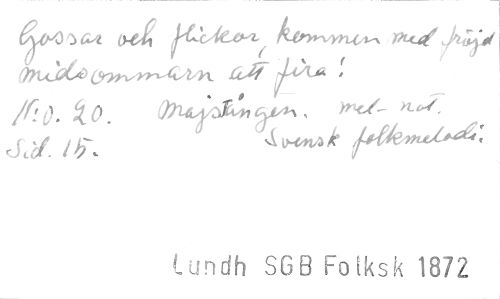 Gossar och flickor, kommen med fröjd
midsommarn att fira!
N:o. 20. Majstången. mel-not.
Sid. 15. Svensk folkmelodi.
Lundh SGB Folksk 1872